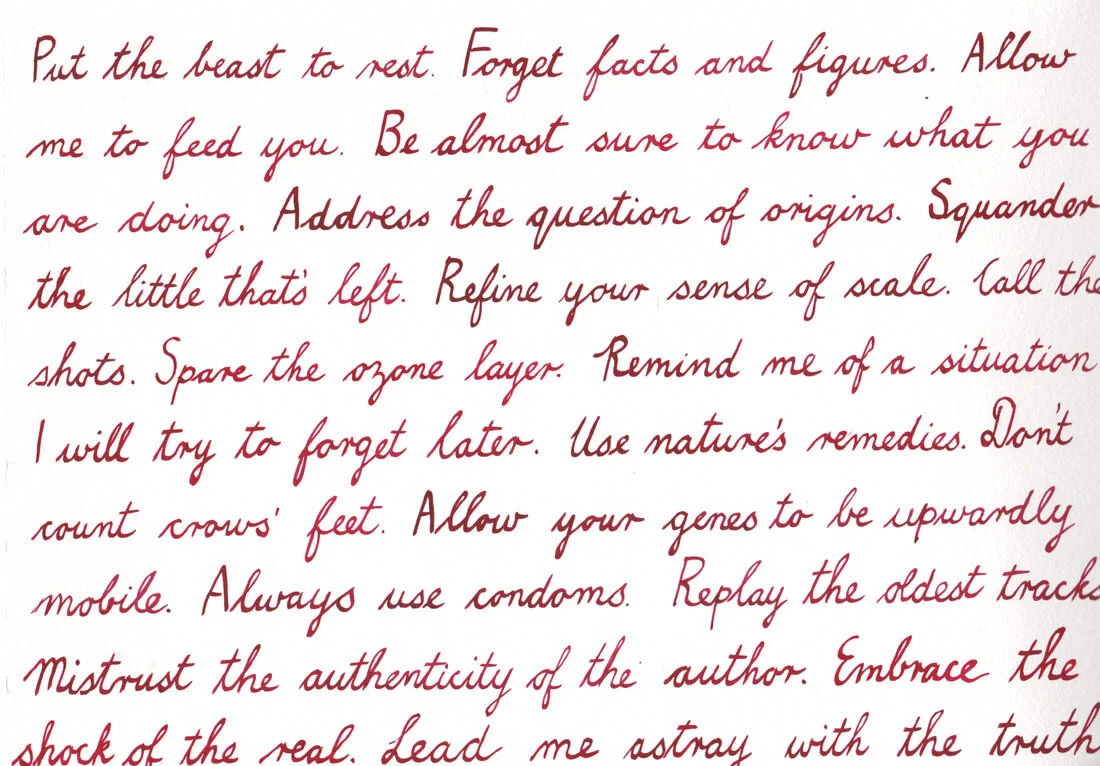 Put the beast to rest. Forget facts and figures. Allow
me to feed you. Be almost sure to know what you
are doing. Address the question of origins. Squander
the little that's left. Refine your sense of scale. Call the
shots. Spare the ozone layer. Remind me of a situation
I will try to forget later. Use nature's remedies. Don't
count crows' feet. Allow your genes to be upwardly
mobile. Always use condoms. Replay the oldest tracks
Mistrust the authenticity of the author. Embrace the
shock of the real. Lead me astray with the truth